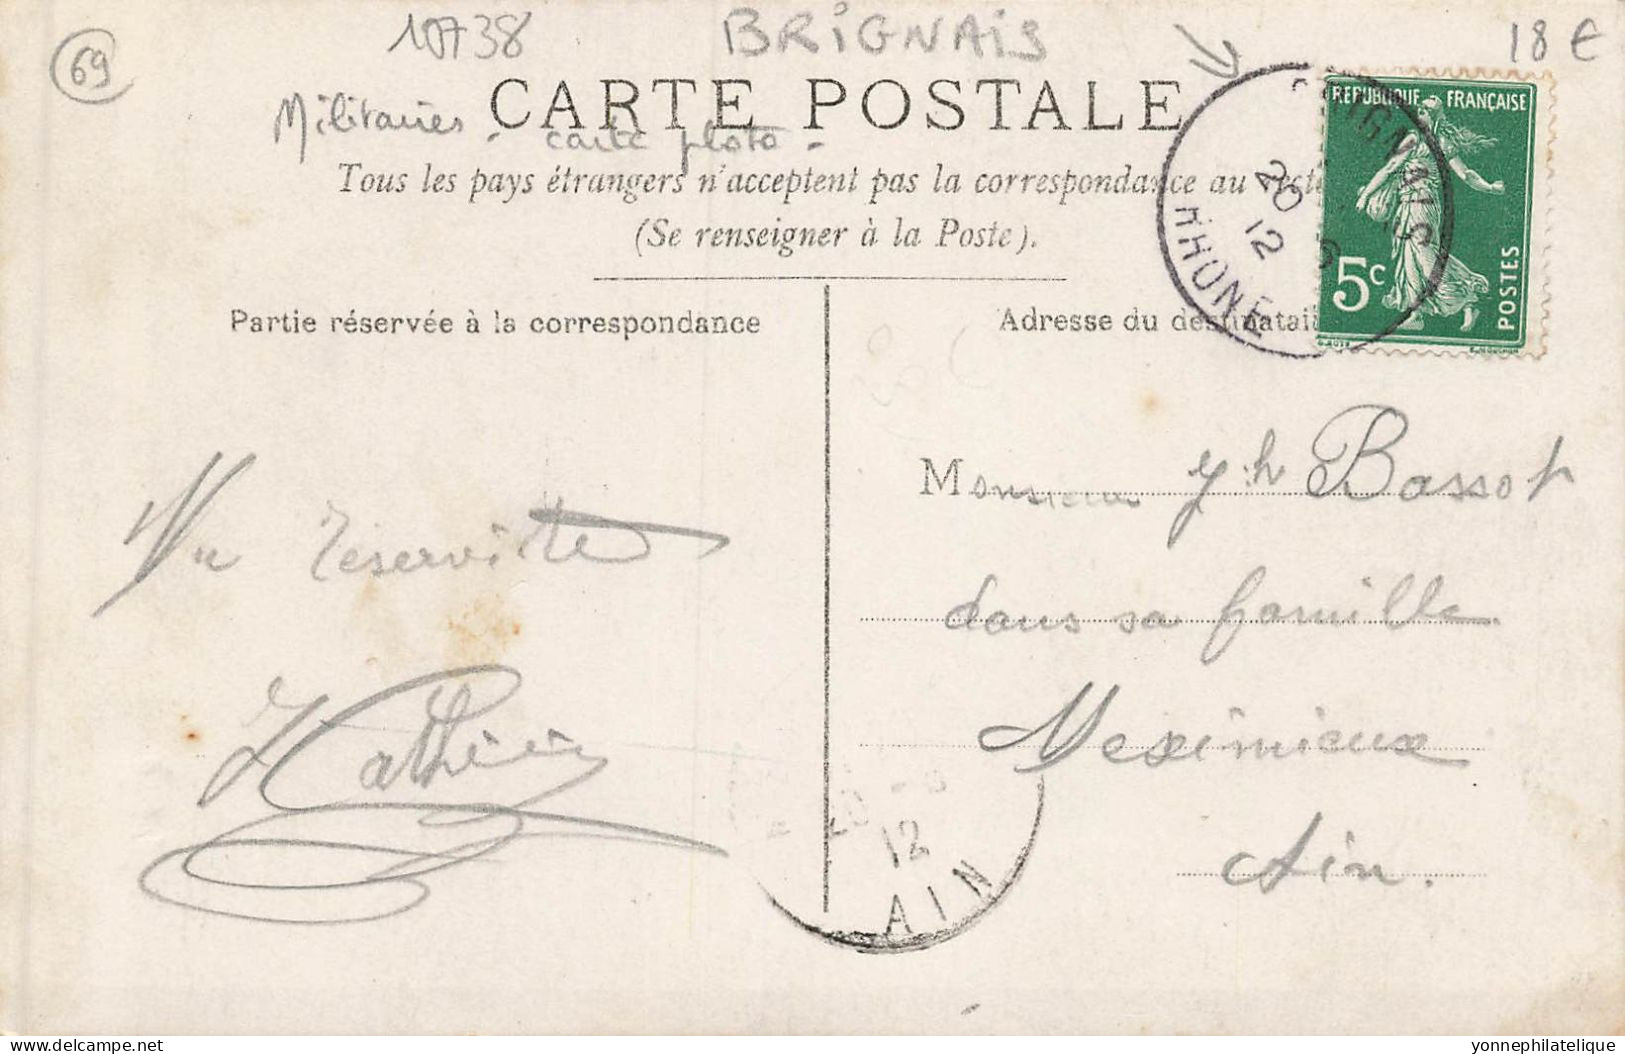 69
10738
BRIGNAIS
18 €
CARTE POSTALE
Militaires - carte photo -
Tous les pays étrangers n'acceptent pas la correspondance au
(Se renseigner à la Poste).
BRIGNAIS
20
12
RHONE
REPUBLIQUE FRANÇAISE
5c
POSTES
Partie réservée à la correspondance
Adresse du destinatai
Un réserviste
Mathieu
Monsieur Jh Bassot
dans sa famille
Meximieux
Ain.
12
AIN
delcampe.net
yonnephilatelique